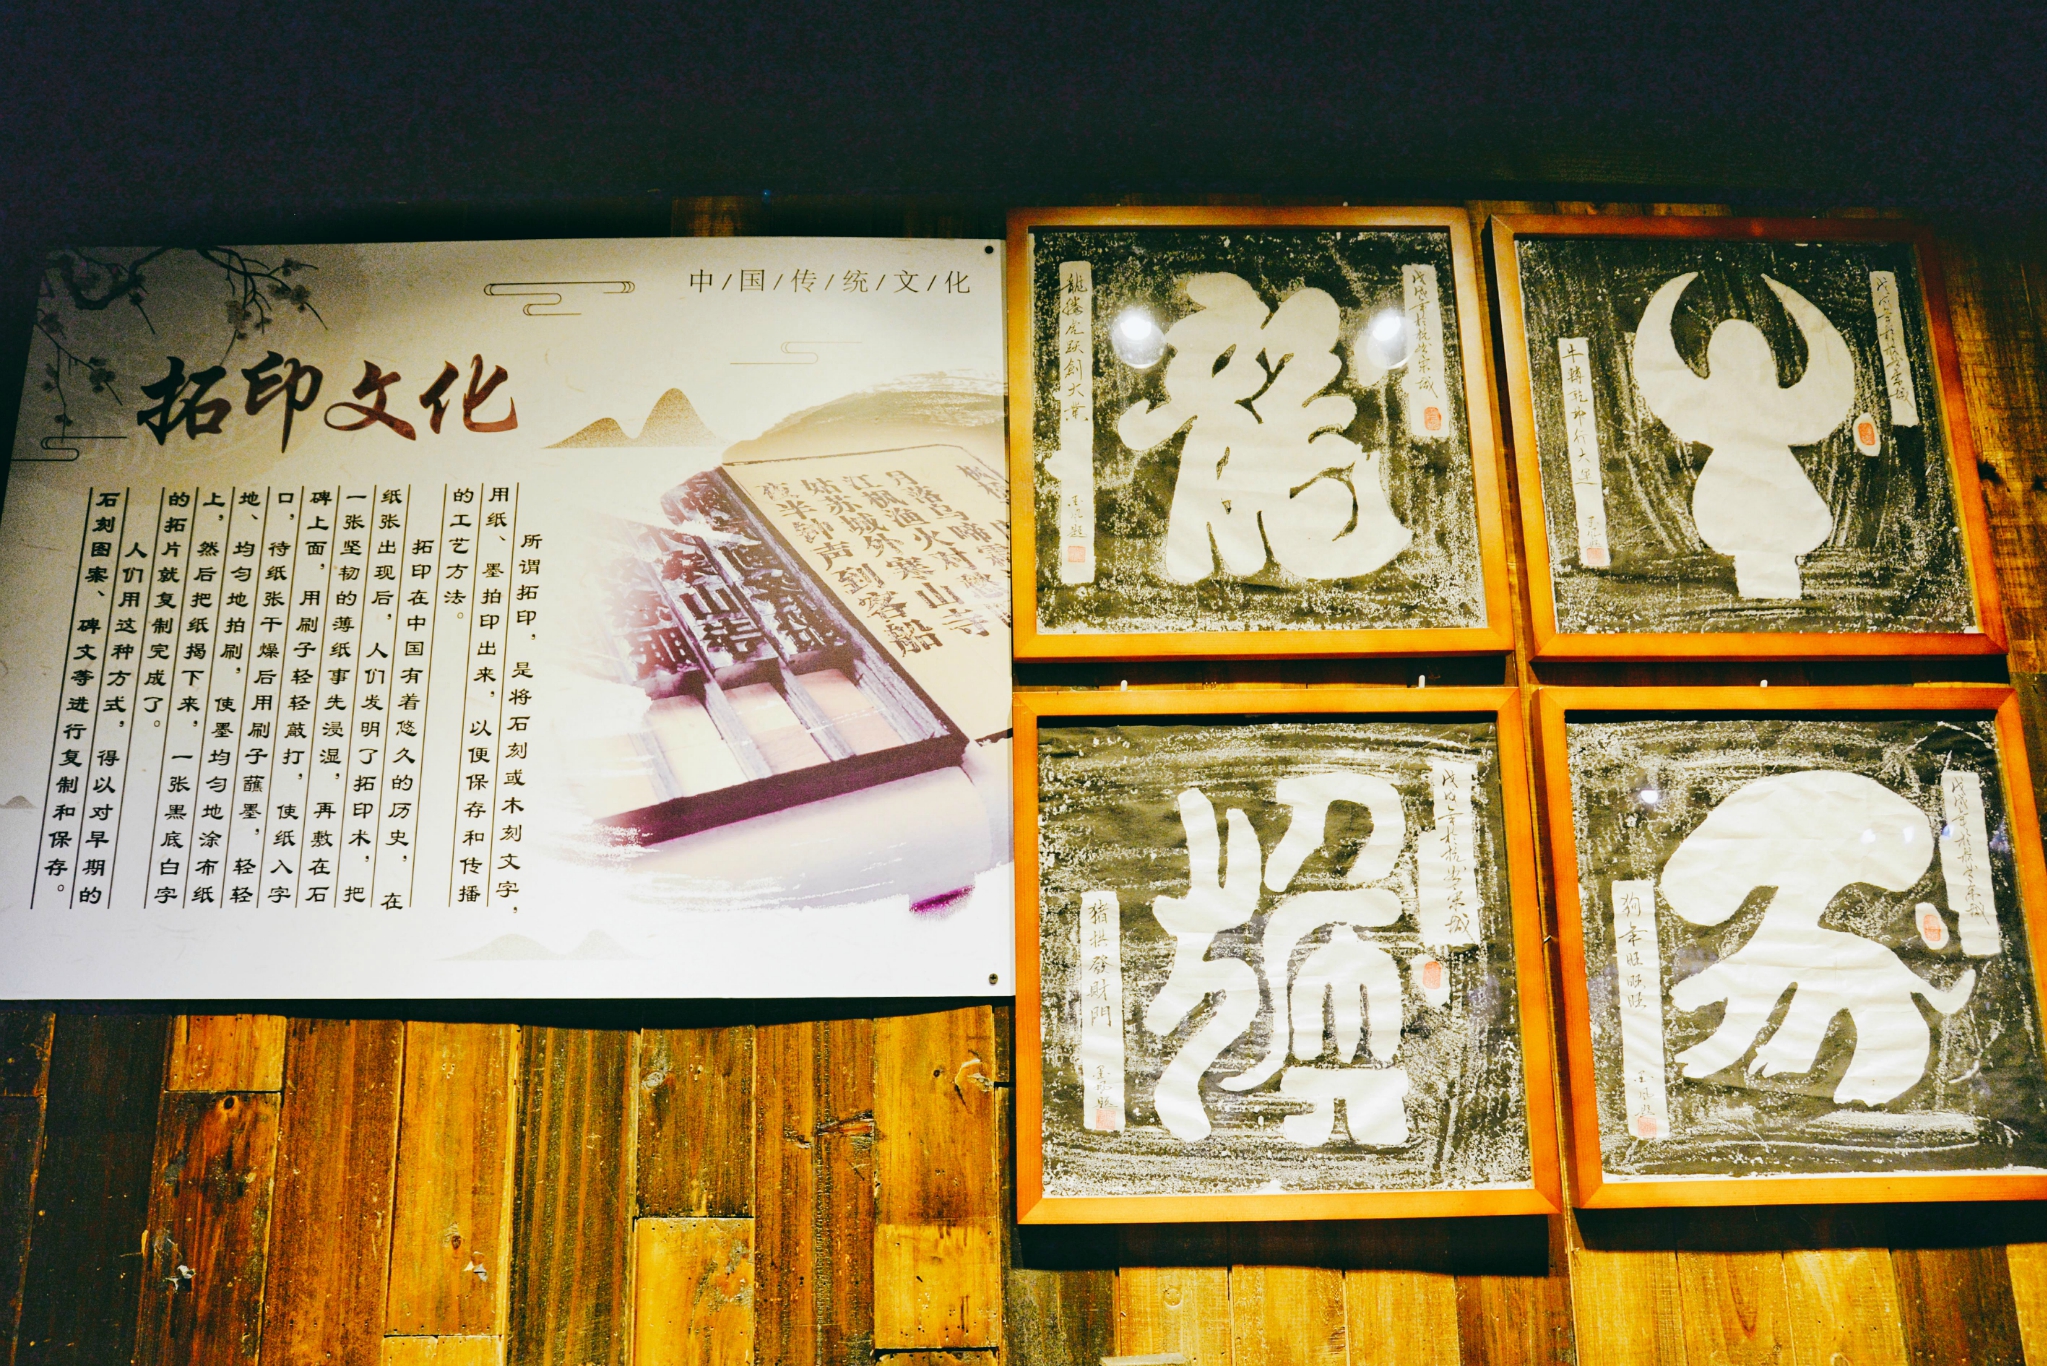 中/国/传/统/文/化
拓印文化
所谓拓印，是将石刻或木刻文字，
用纸、墨拍印出来，以便保存和传播
的工艺方法。
拓印在中国有着悠久的历史，在
纸张出现后，人们发明了拓印术，把
一张坚韧的薄纸事先浸湿，再敷在石
碑上面，用刷子轻轻敲打，使纸入字
口，待纸张干燥后用刷子蘸墨，轻轻
地、均匀地拍刷，使墨均匀地涂布纸
上，然后把纸揭下来，一张黑底白字
的拓片就复制完成了。
人们用这种方式，得以对早期的
石刻图案、碑文等进行复制和保存。
月落乌啼霜
江枫渔火对
姑苏城外寒山寺
夜半钟声到客船
戊戌年于杭州宋城
龍
龍騰虎跃創大業
戊戌年于杭州宋城
牛
牛轉乾坤行大運
戊戌年于杭州宋城
猪拱發財門
戊戌年于杭州宋城
狗年旺旺旺